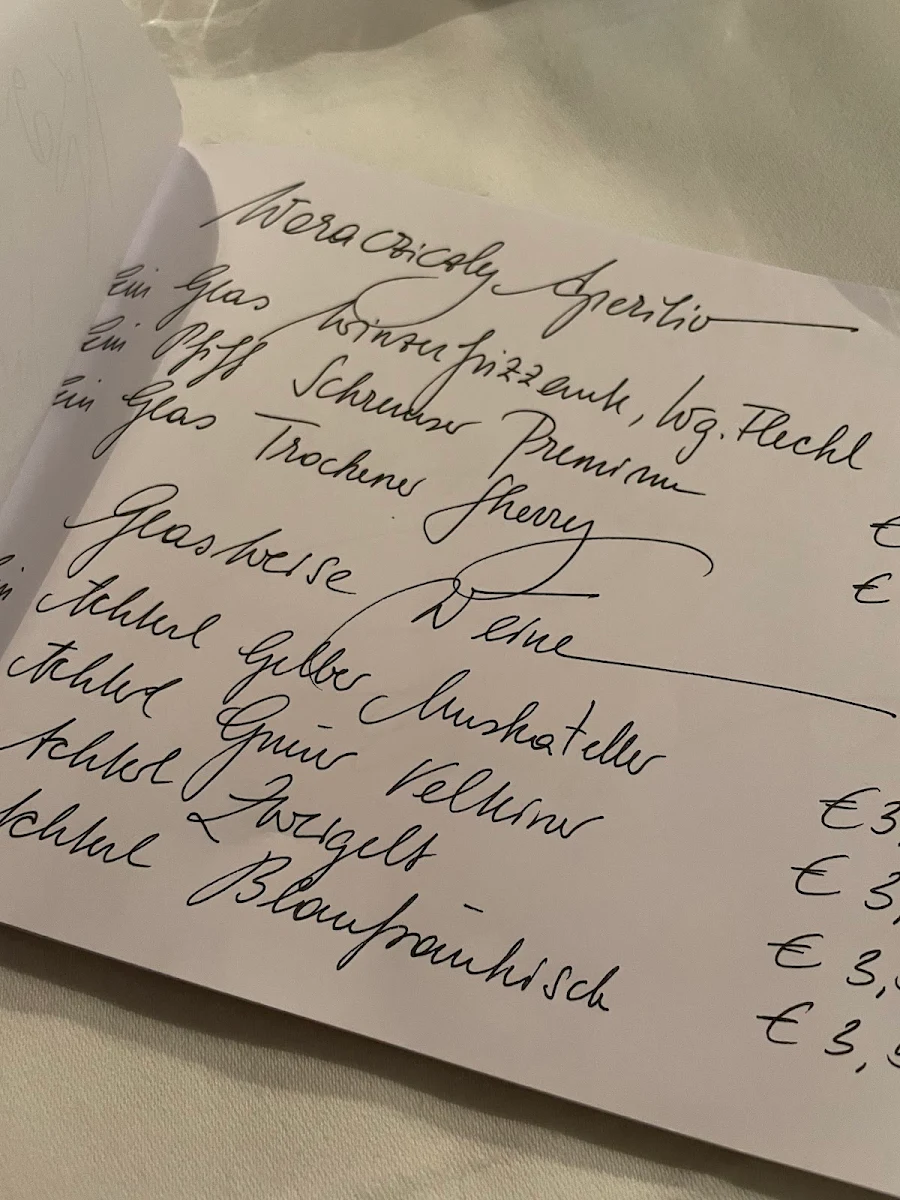 Woracziczky Aperitio
Ein Glas Winzerfrizzante, Wg. Flechl
Ein Pfiff Schremser Premium
Ein Glas Trockener Sherry €
€
Glasweise Weine
Achterl Gelber Muskateller € 3,
Achterl Grüner Veltliner € 3,
Achterl Zweigelt € 3,
Achterl Blaufränkisch € 3,5